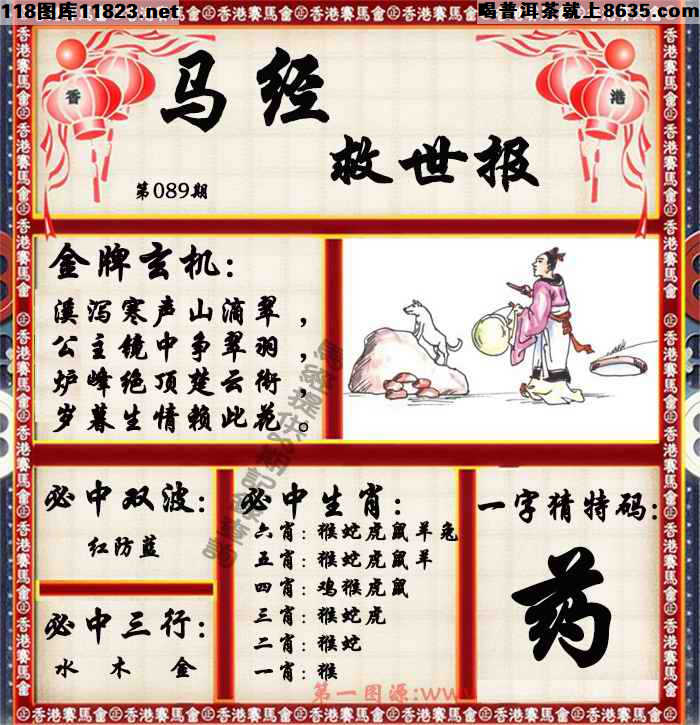 118图库11823.net
喝普洱茶就上8635.com
香港賽馬會
香
港
马经
救世报
第089期
金牌玄机：
溪泻寒声山滴翠，
公主镜中争翠羽，
炉峰绝顶楚云衔，
岁暮生情赖此花。
必中双波：
红防蓝
必中三行：
水 木 金
必中生肖：
六肖：猴蛇虎鼠羊兔
五肖：猴蛇虎鼠羊
四肖：鸡猴虎鼠
三肖：猴蛇虎
二肖：猴蛇
一肖：猴
一字猜特码：
药
第一图源:www